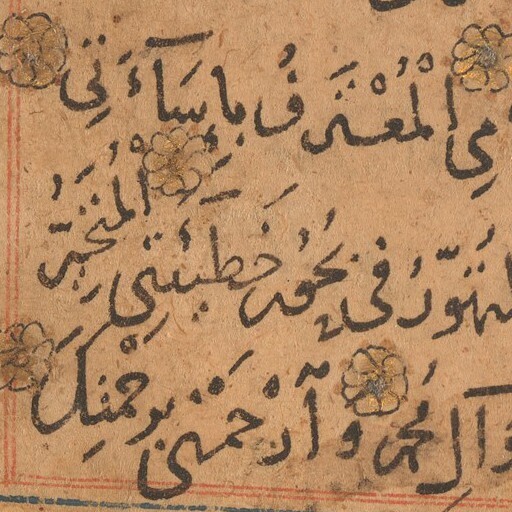 مِي الْمُعْتَرَفُ بِإِسَاۤءَتِي
الْمُتَحَيِّرُ
الْمُتَهَوِّرُ فِي بُحُورِ خَطِيۤئَتِي
وَآلِ مُحَمَّدٍ وَآرْحَمْنِي بِرَحْمَتِكَ